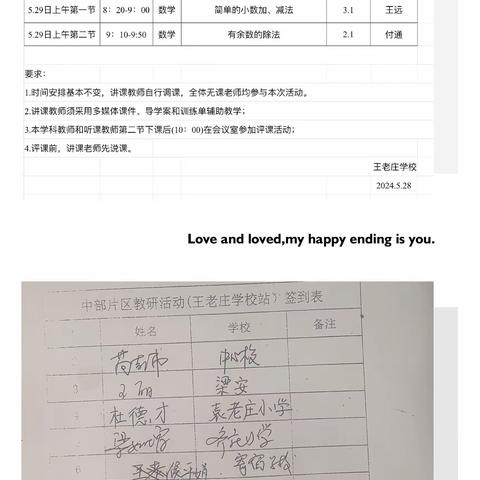 5.29日上午第一节 8：20-9：00 数学 简单的小数加、减法 3.1 王远
5.29日上午第二节 9：10-9:50 数学 有余数的除法 2.1 付通
要求：
1.时间安排基本不变，讲课教师自行调课，全体无课老师均参与本次活动。
2.讲课教师须采用多媒体课件、导学案和训练单辅助教学；
3.本学科教师和听课教师第二节下课后(10：00)在会议室参加评课活动；
4.评课前，讲课老师先说课。
王老庄学校
2024.5.28
Love and loved,my happy ending is you.
中部片区教研活动(王老庄学校站）签到表
姓名 学校 备注
中心校
3 王丽 梁安
杜德才 袁老庄小学
6